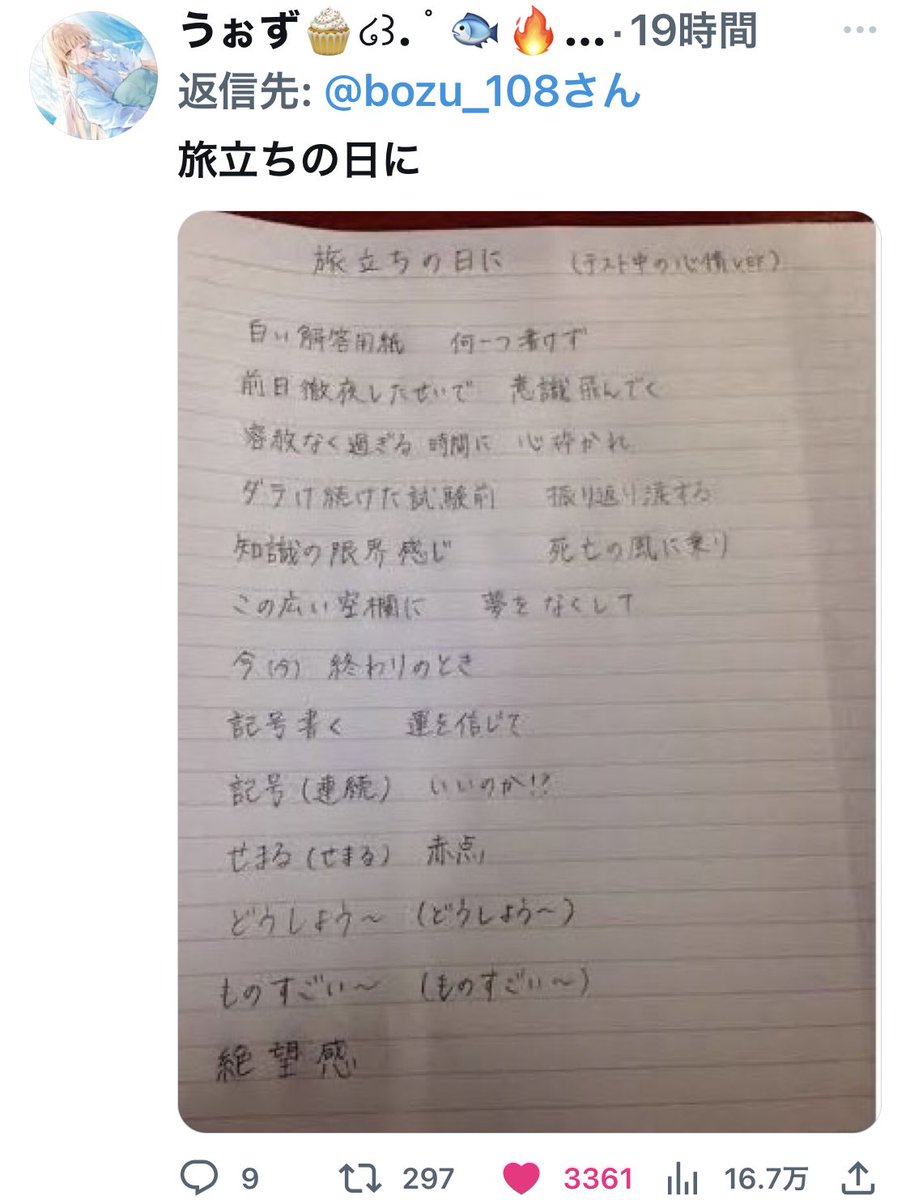 うぉず🧁໒꒱. ゜🐟🔥...·19時間
返信先: @bozu_108さん
旅立ちの日に
旅立ちの日に (テスト中の心情ver)
白い解答用紙 何一つ書けず
前日徹夜したせいで 意識飛んでく
容赦なく過ぎる 時間に 心砕かれ
ダラけ続けた試験前 振り返り涙する
知識の限界感じ 死亡の風に乗り
この広い空欄に 夢をなくして
今(今) 終わりのとき
記号書く 運を信じて
記号(連続) いいのか!?
せまる(せまる) 赤点
どうしよう〜 (どうしよう〜)
ものすごい〜 (ものすごい〜)
絶望感
9 297 3361 16.7万